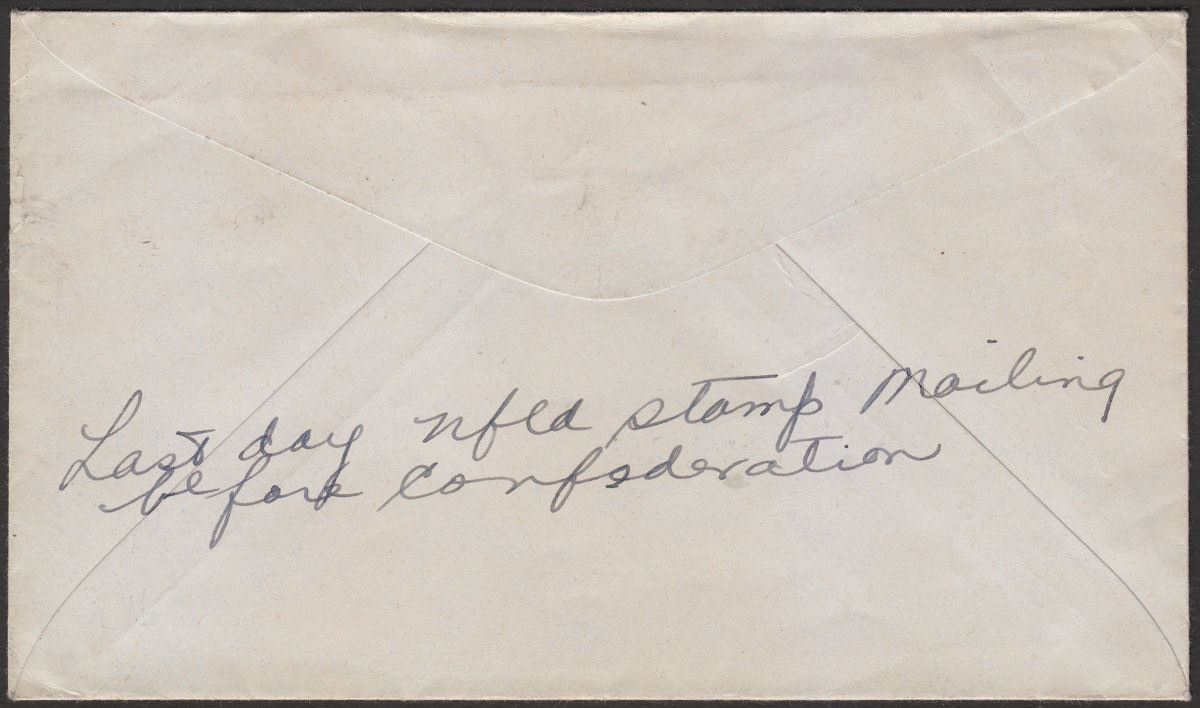 Last day nfld stamp mailing
before confederation